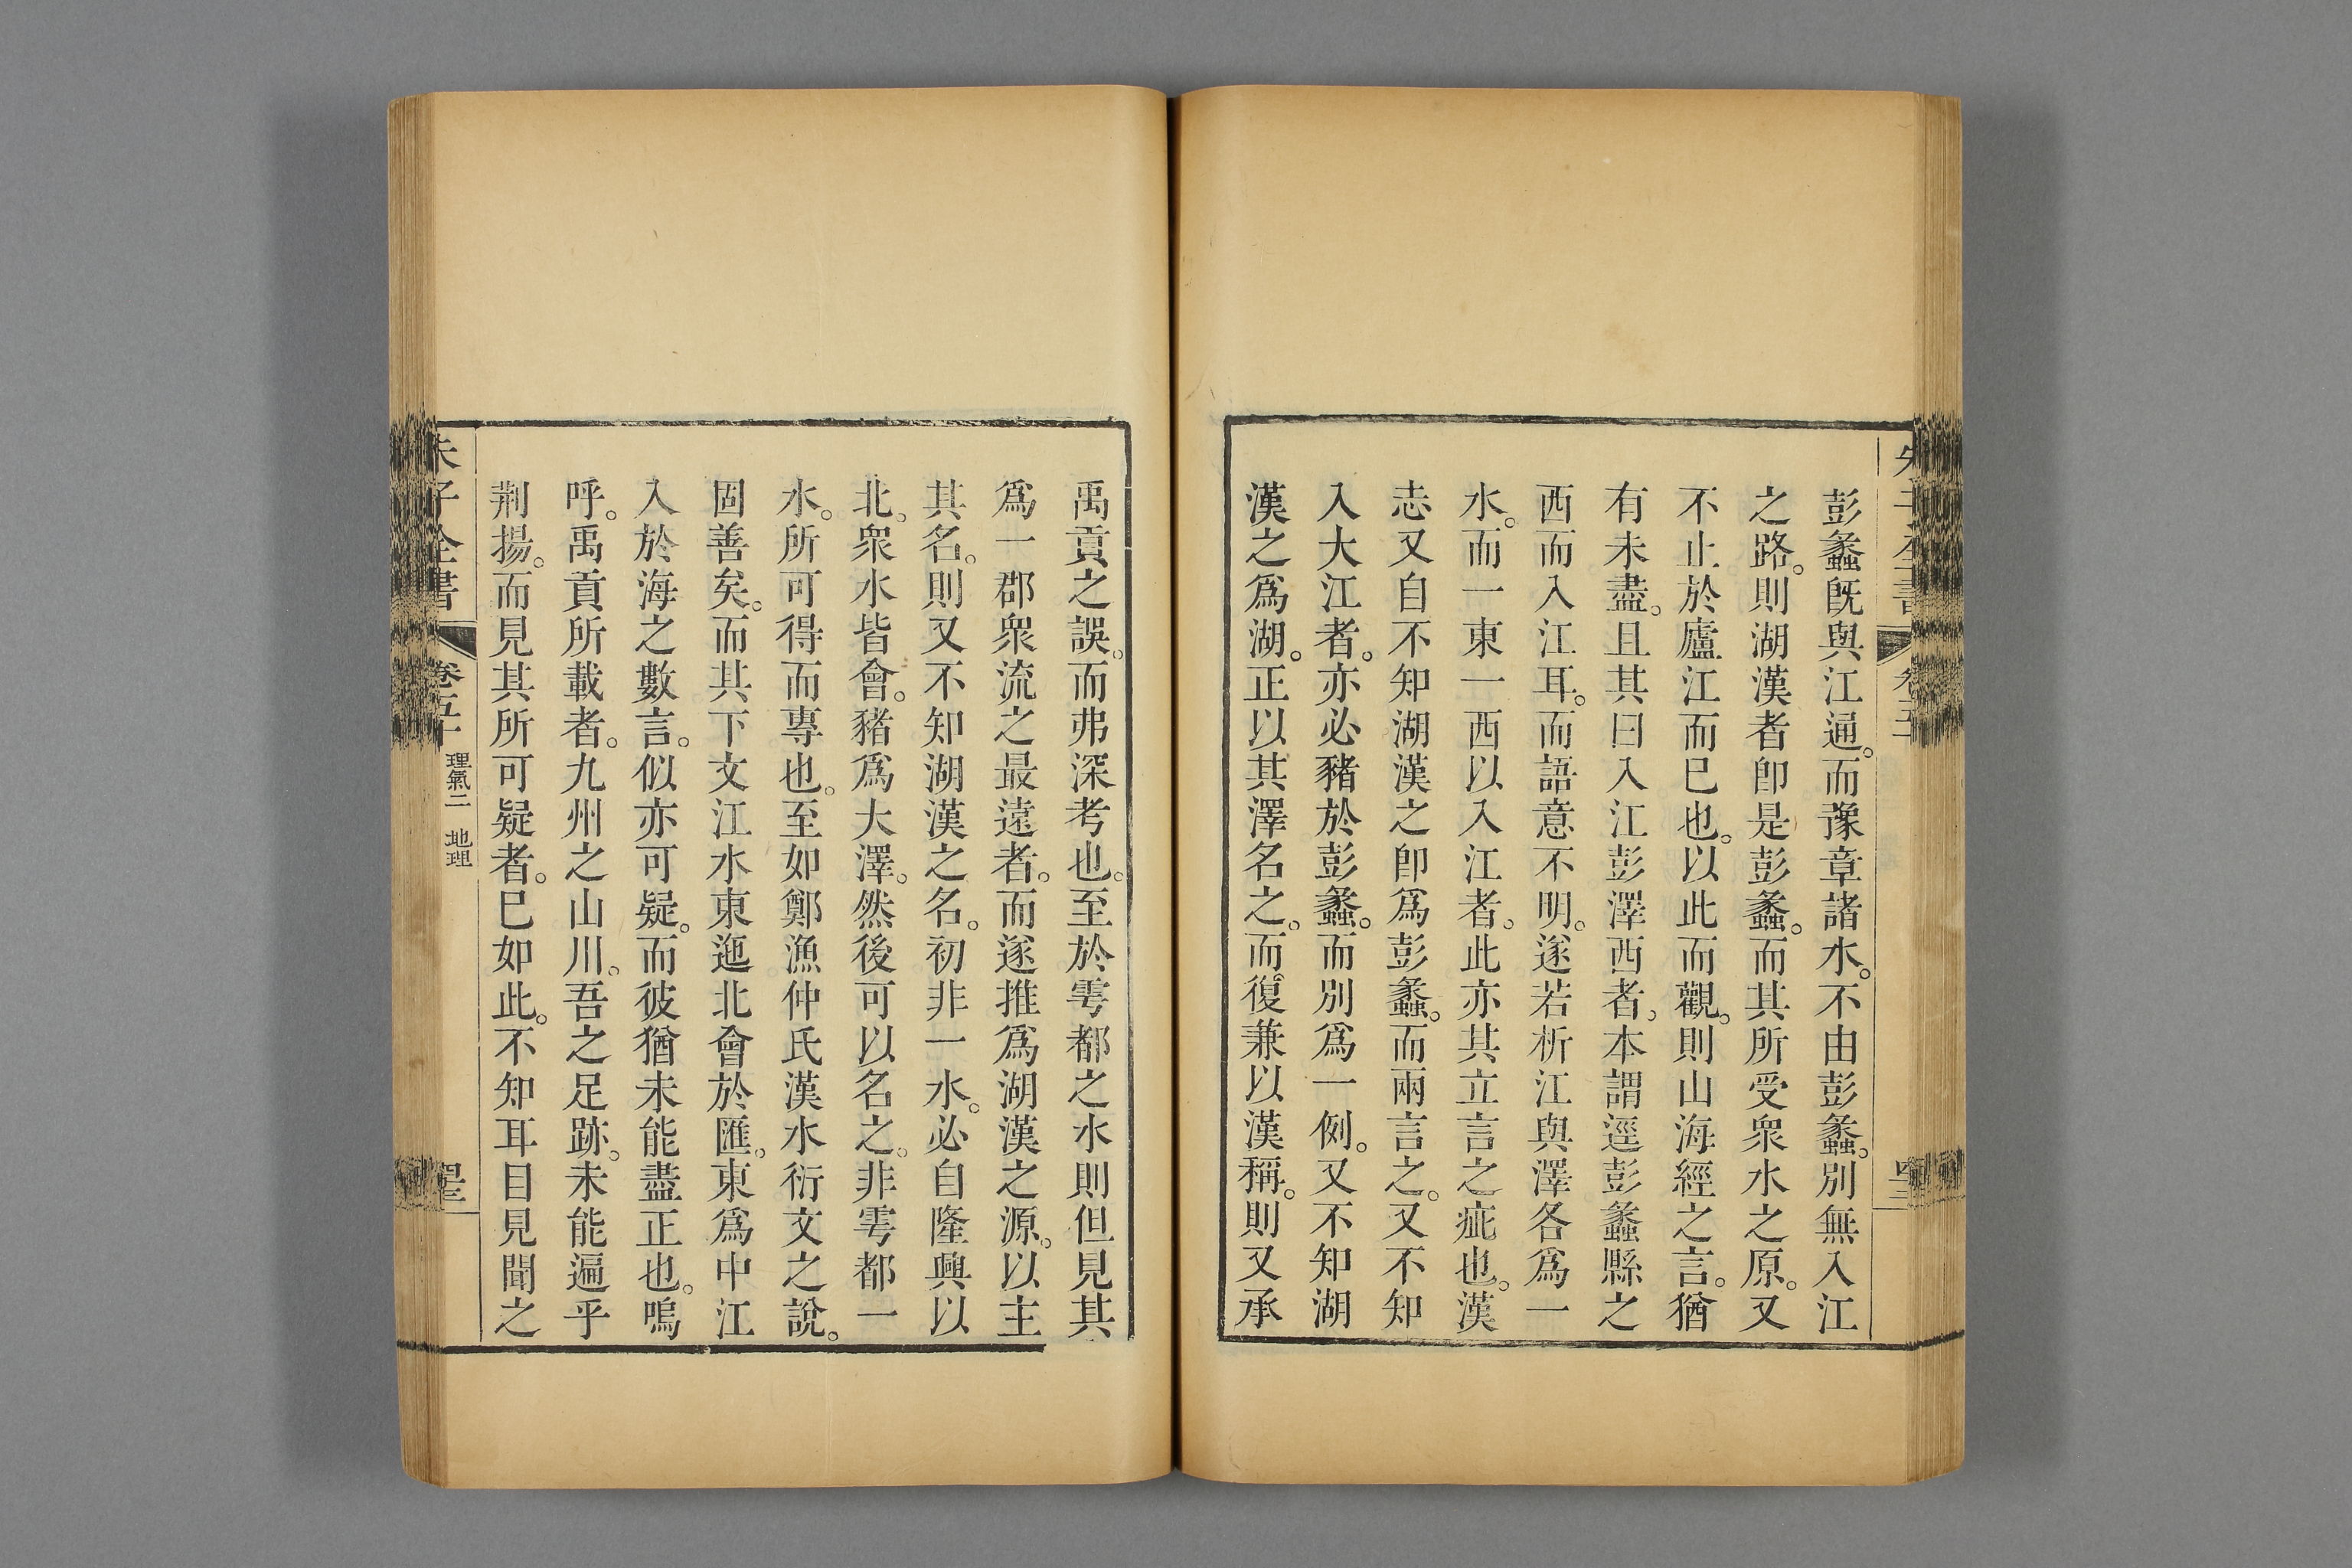 彭蠡旣與江通。而豫章諸水。不由彭蠡。別無入江
之路。則湖漢者卽是彭蠡。而其所受衆水之原。又
不止於廬江而已也。以此而觀。則山海經之言。猶
有未盡。且其曰入江彭澤西者。本謂逕彭蠡縣之
西而入江耳。而語意不明。遂若析江與澤各爲一
水。而一東一西以入江者。此亦其立言之疵也。漢
志又自不知湖漢之卽爲彭蠡。而兩言之。又不知
入大江者。亦必豬於彭蠡。而別爲一例。又不知湖
漢之爲湖。正以其澤名之。而復兼以漢稱。則又承
禹貢之誤。而弗深考也。至於雩都之水則但見其
爲一郡衆流之最遠者。而遂推爲湖漢之源。以主
其名。則又不知湖漢之名。初非一水。必自隆興以
北。衆水皆會。豬爲大澤。然後可以名之。非雩都一
水。所可得而專也。至如鄭漁仲氏漢水衍文之說。
固善矣。而其下文江水東迤北會於匯。東爲中江
入於海之數言。似亦可疑。而彼猶未能盡正也。嗚
呼。禹貢所載者。九州之山川。吾之足跡。未能遍乎
荆揚。而見其所可疑者。已如此。不知耳目見聞之
朱子全書
卷五十
理氣二 地理